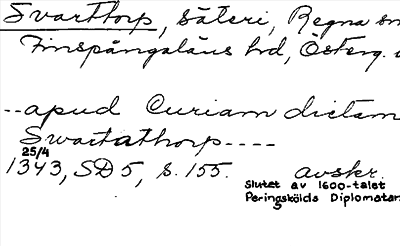 Svarttorp, säteri, Regna sn
Finspångaläns hd, Österg.
--apud Curiam dictam
Swartathorp----
25/4
1343, SD 5, s. 155. avskr.
Slutet av 1600-talet
Peringskölds Diplomatar
5